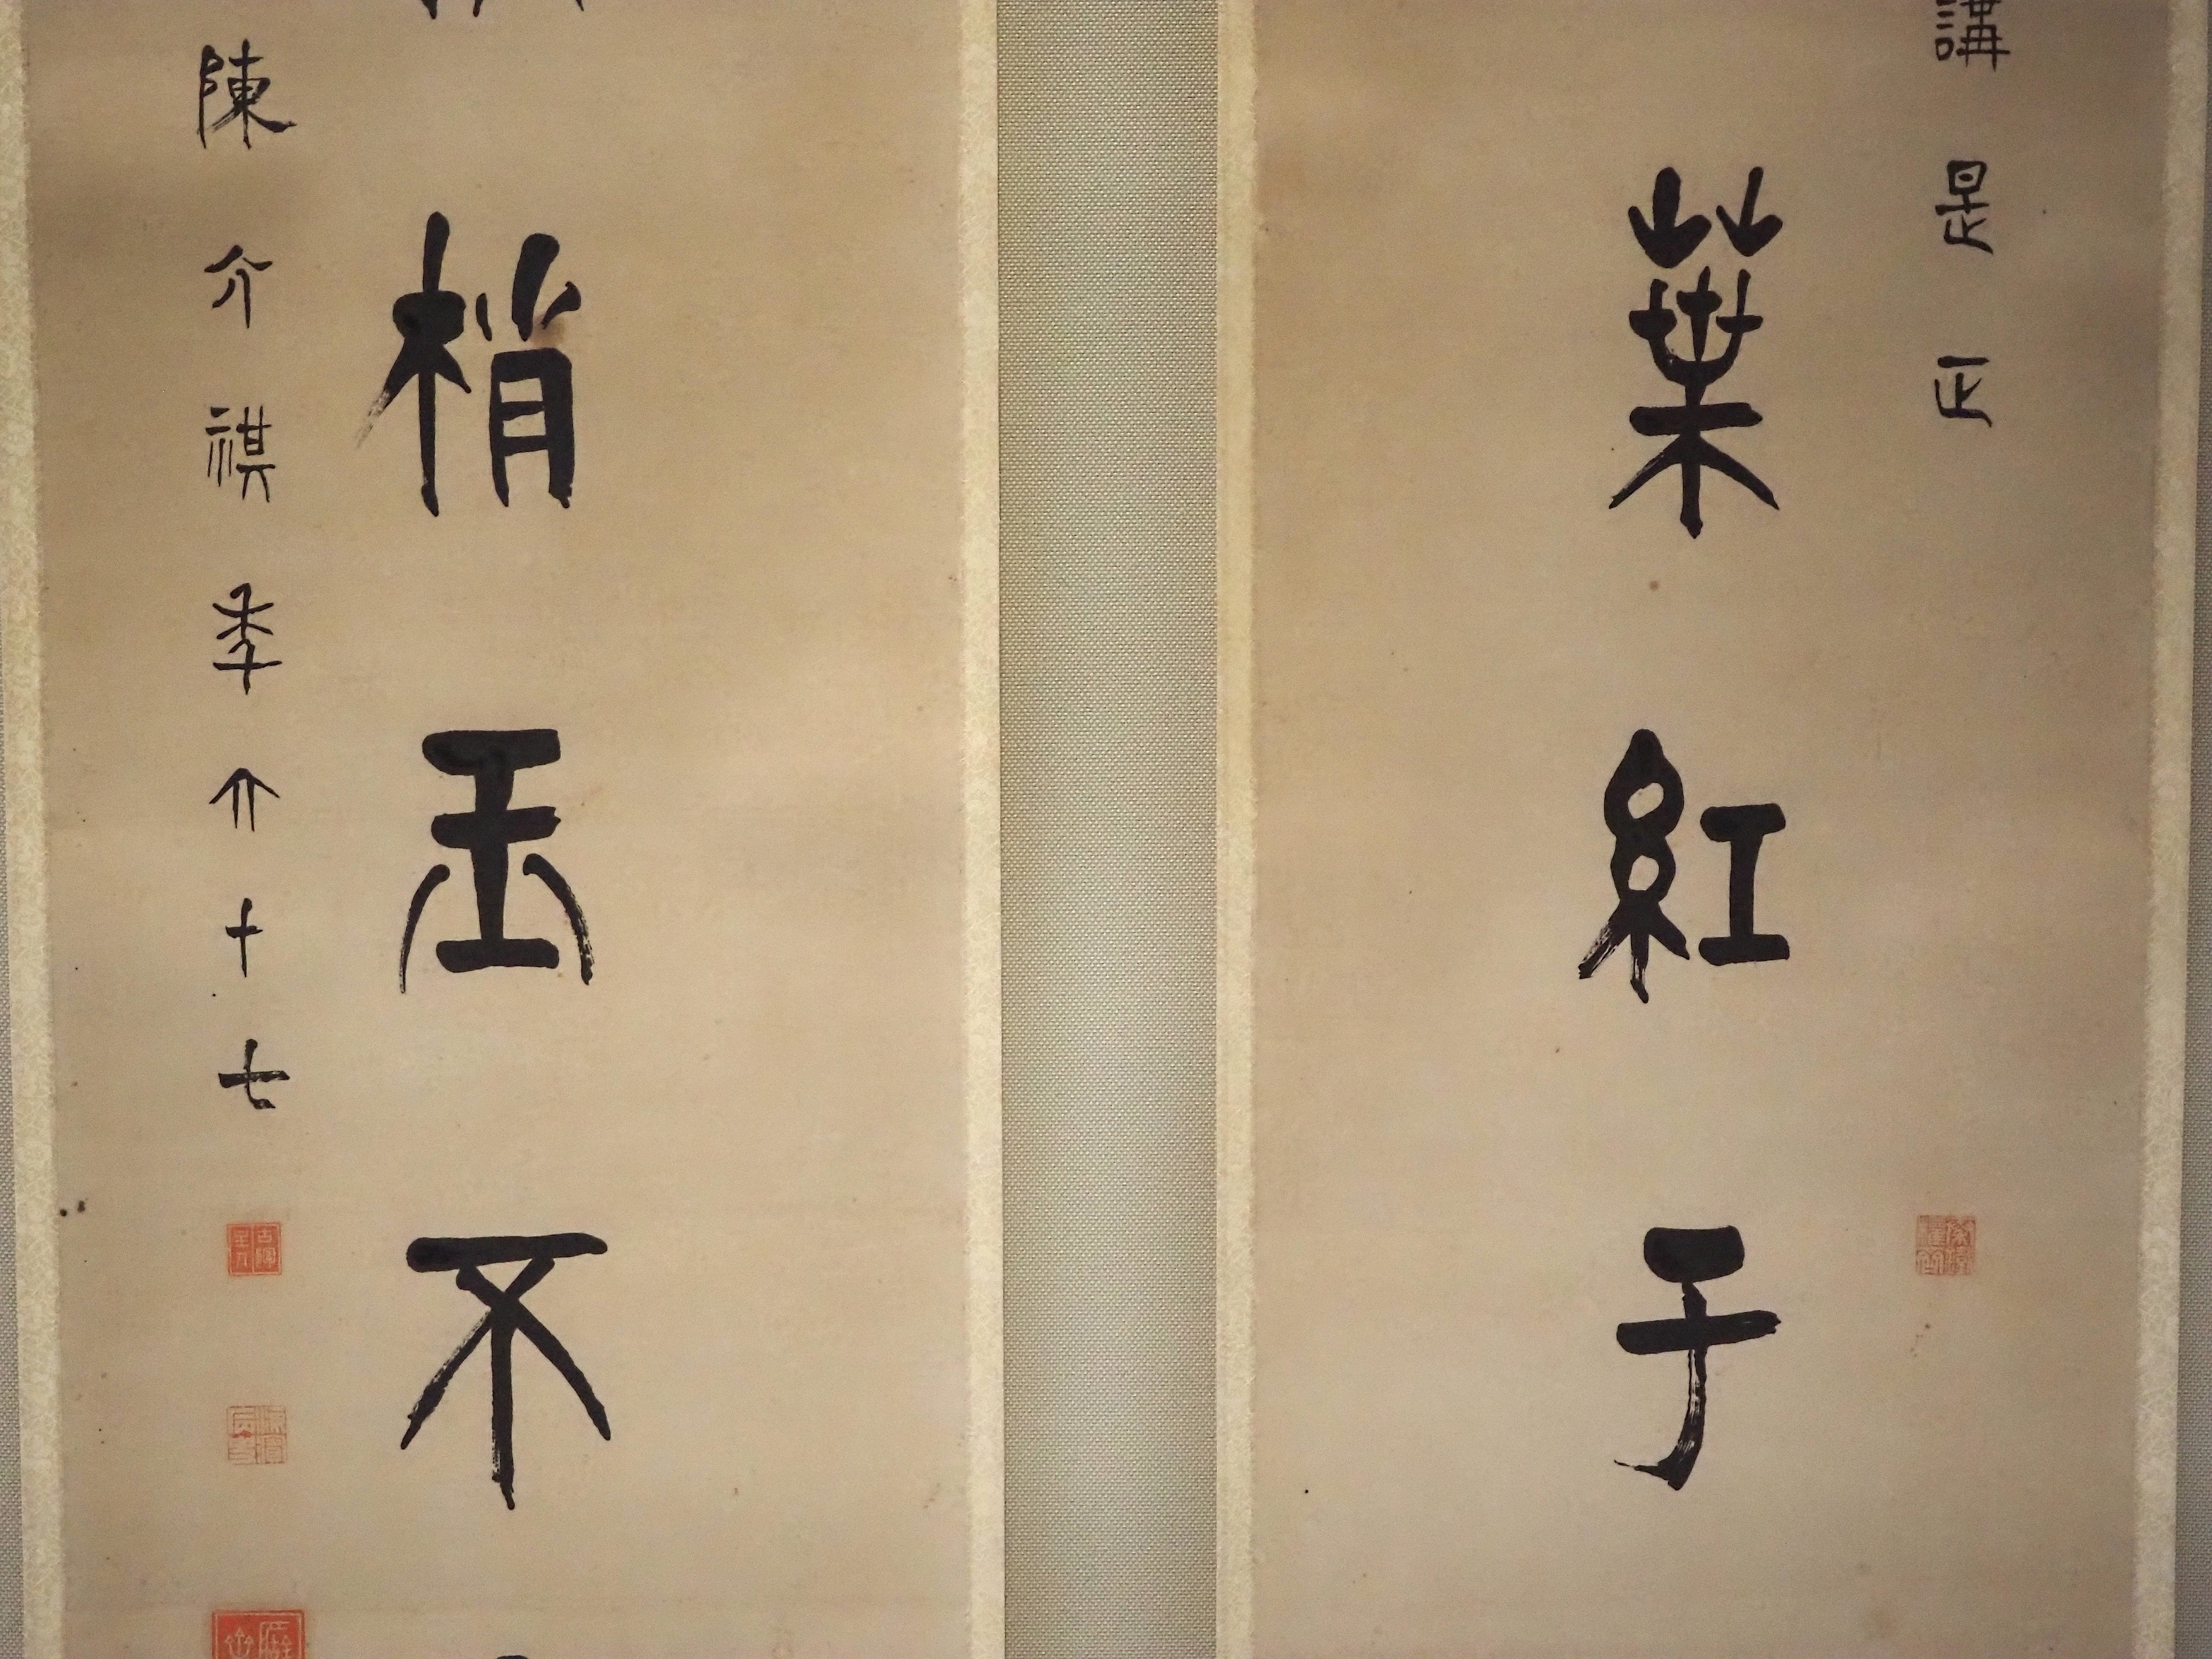 講是正
葉紅于
梢玉不
陳介祺季六十七